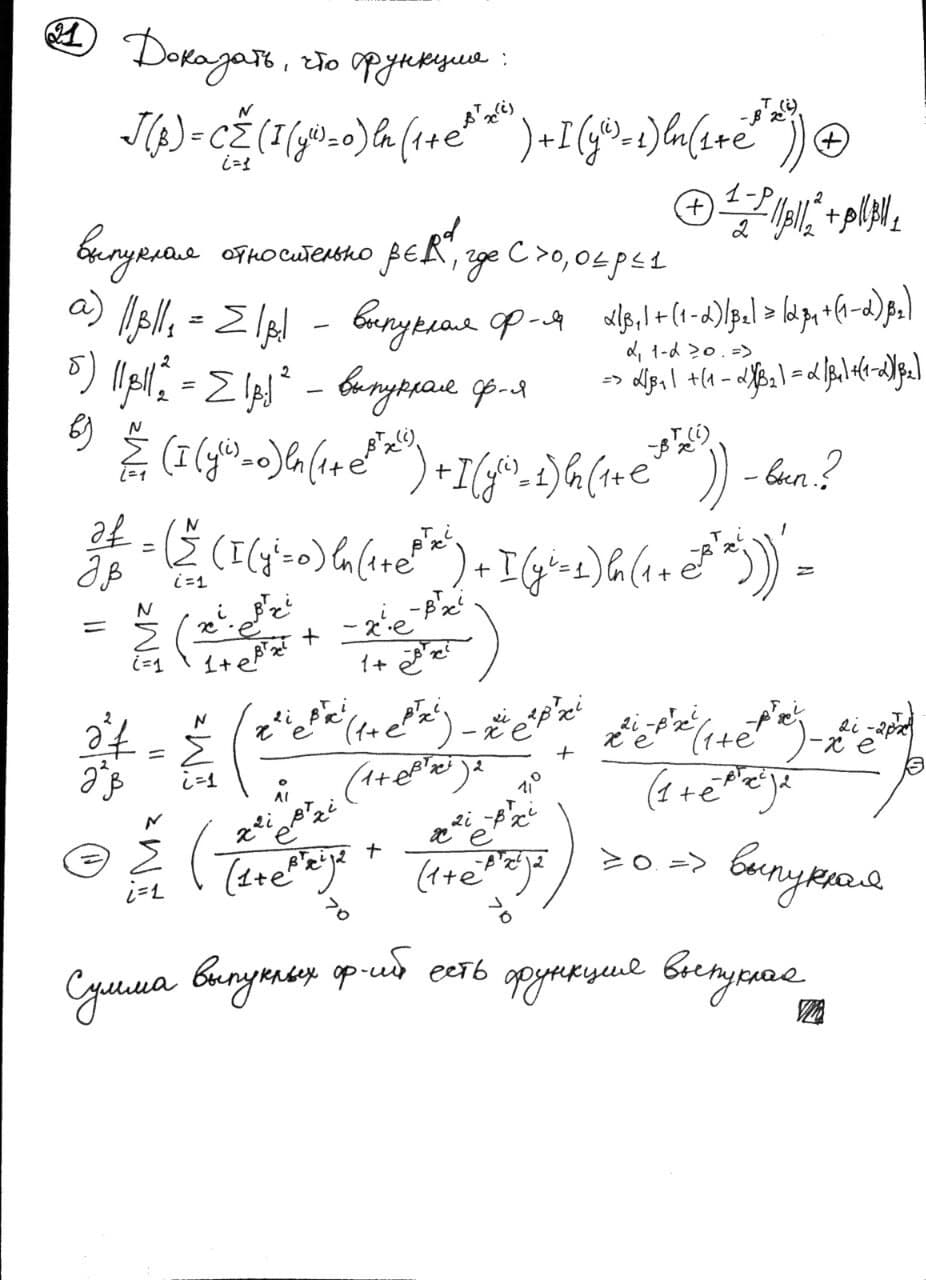 21 Доказать, что функция:
J(β) = C∑_{i=1}^{N} (I(y^{(i)}=0) ln(1+e^{β^T x^{(i)}}) + I(y^{(i)}=1) ln(1+e^{-β^T x^{(i)}})) ⊕
⊕ \frac{1-ρ}{2} ||β||_2^2 + ρ||β||_1
выпуклая относительно β∈ℝ^d, где C>0, 0≤ρ≤1
а) ||β||_1 = ∑|β_i| – выпуклая ф-я α|β_1|+(1-α)|β_2| ≥ |αβ_1+(1-α)β_2|
α, 1-α ≥ 0. =>
б) ||β||_2^2 = ∑|β_i|^2 – выпуклая ф-я => α|β_1| + (1-α)|β_2| = α|β_1|+(1-α)|β_2|
в) ∑_{i=1}^{N} (I(y^{(i)}=0) ln(1+e^{β^T x^{(i)}}) + I(y^{(i)}=1) ln(1+e^{-β^T x^{(i)}})) – вып.?
\frac{∂f}{∂β} = (∑_{i=1}^{N} (I(y^i=0) ln(1+e^{β^T x^i}) + I(y^i=1) ln(1+e^{-β^T x^i})))' =
= ∑_{i=1}^{N} (\frac{x^i·e^{β^T x^i}}{1+e^{β^T x^i}} + \frac{-x^i·e^{-β^T x^i}}{1+e^{-β^T x^i}})
\frac{∂^2 f}{∂^2 β} = ∑_{i=1}^{N} (\frac{x^{2i} e^{β^T x^i}(1+e^{β^T x^i}) - x^{2i} e^{2β^T x^i}}{(1+e^{β^T x^i})^2} + \frac{x^{2i} e^{-β^T x^i}(1+e^{-β^T x^i}) - x^{2i} e^{-2β^T x^i}}{(1+e^{-β^T x^i})^2}) ⊜
⊜ ∑_{i=1}^{N} (\frac{x^{2i} e^{β^T x^i}}{(1+e^{β^T x^i})^2} + \frac{x^{2i} e^{-β^T x^i}}{(1+e^{-β^T x^i})^2}) ≥ 0. => выпуклая
>0 >0
Сумма выпуклых ф-ий есть функция выпуклая